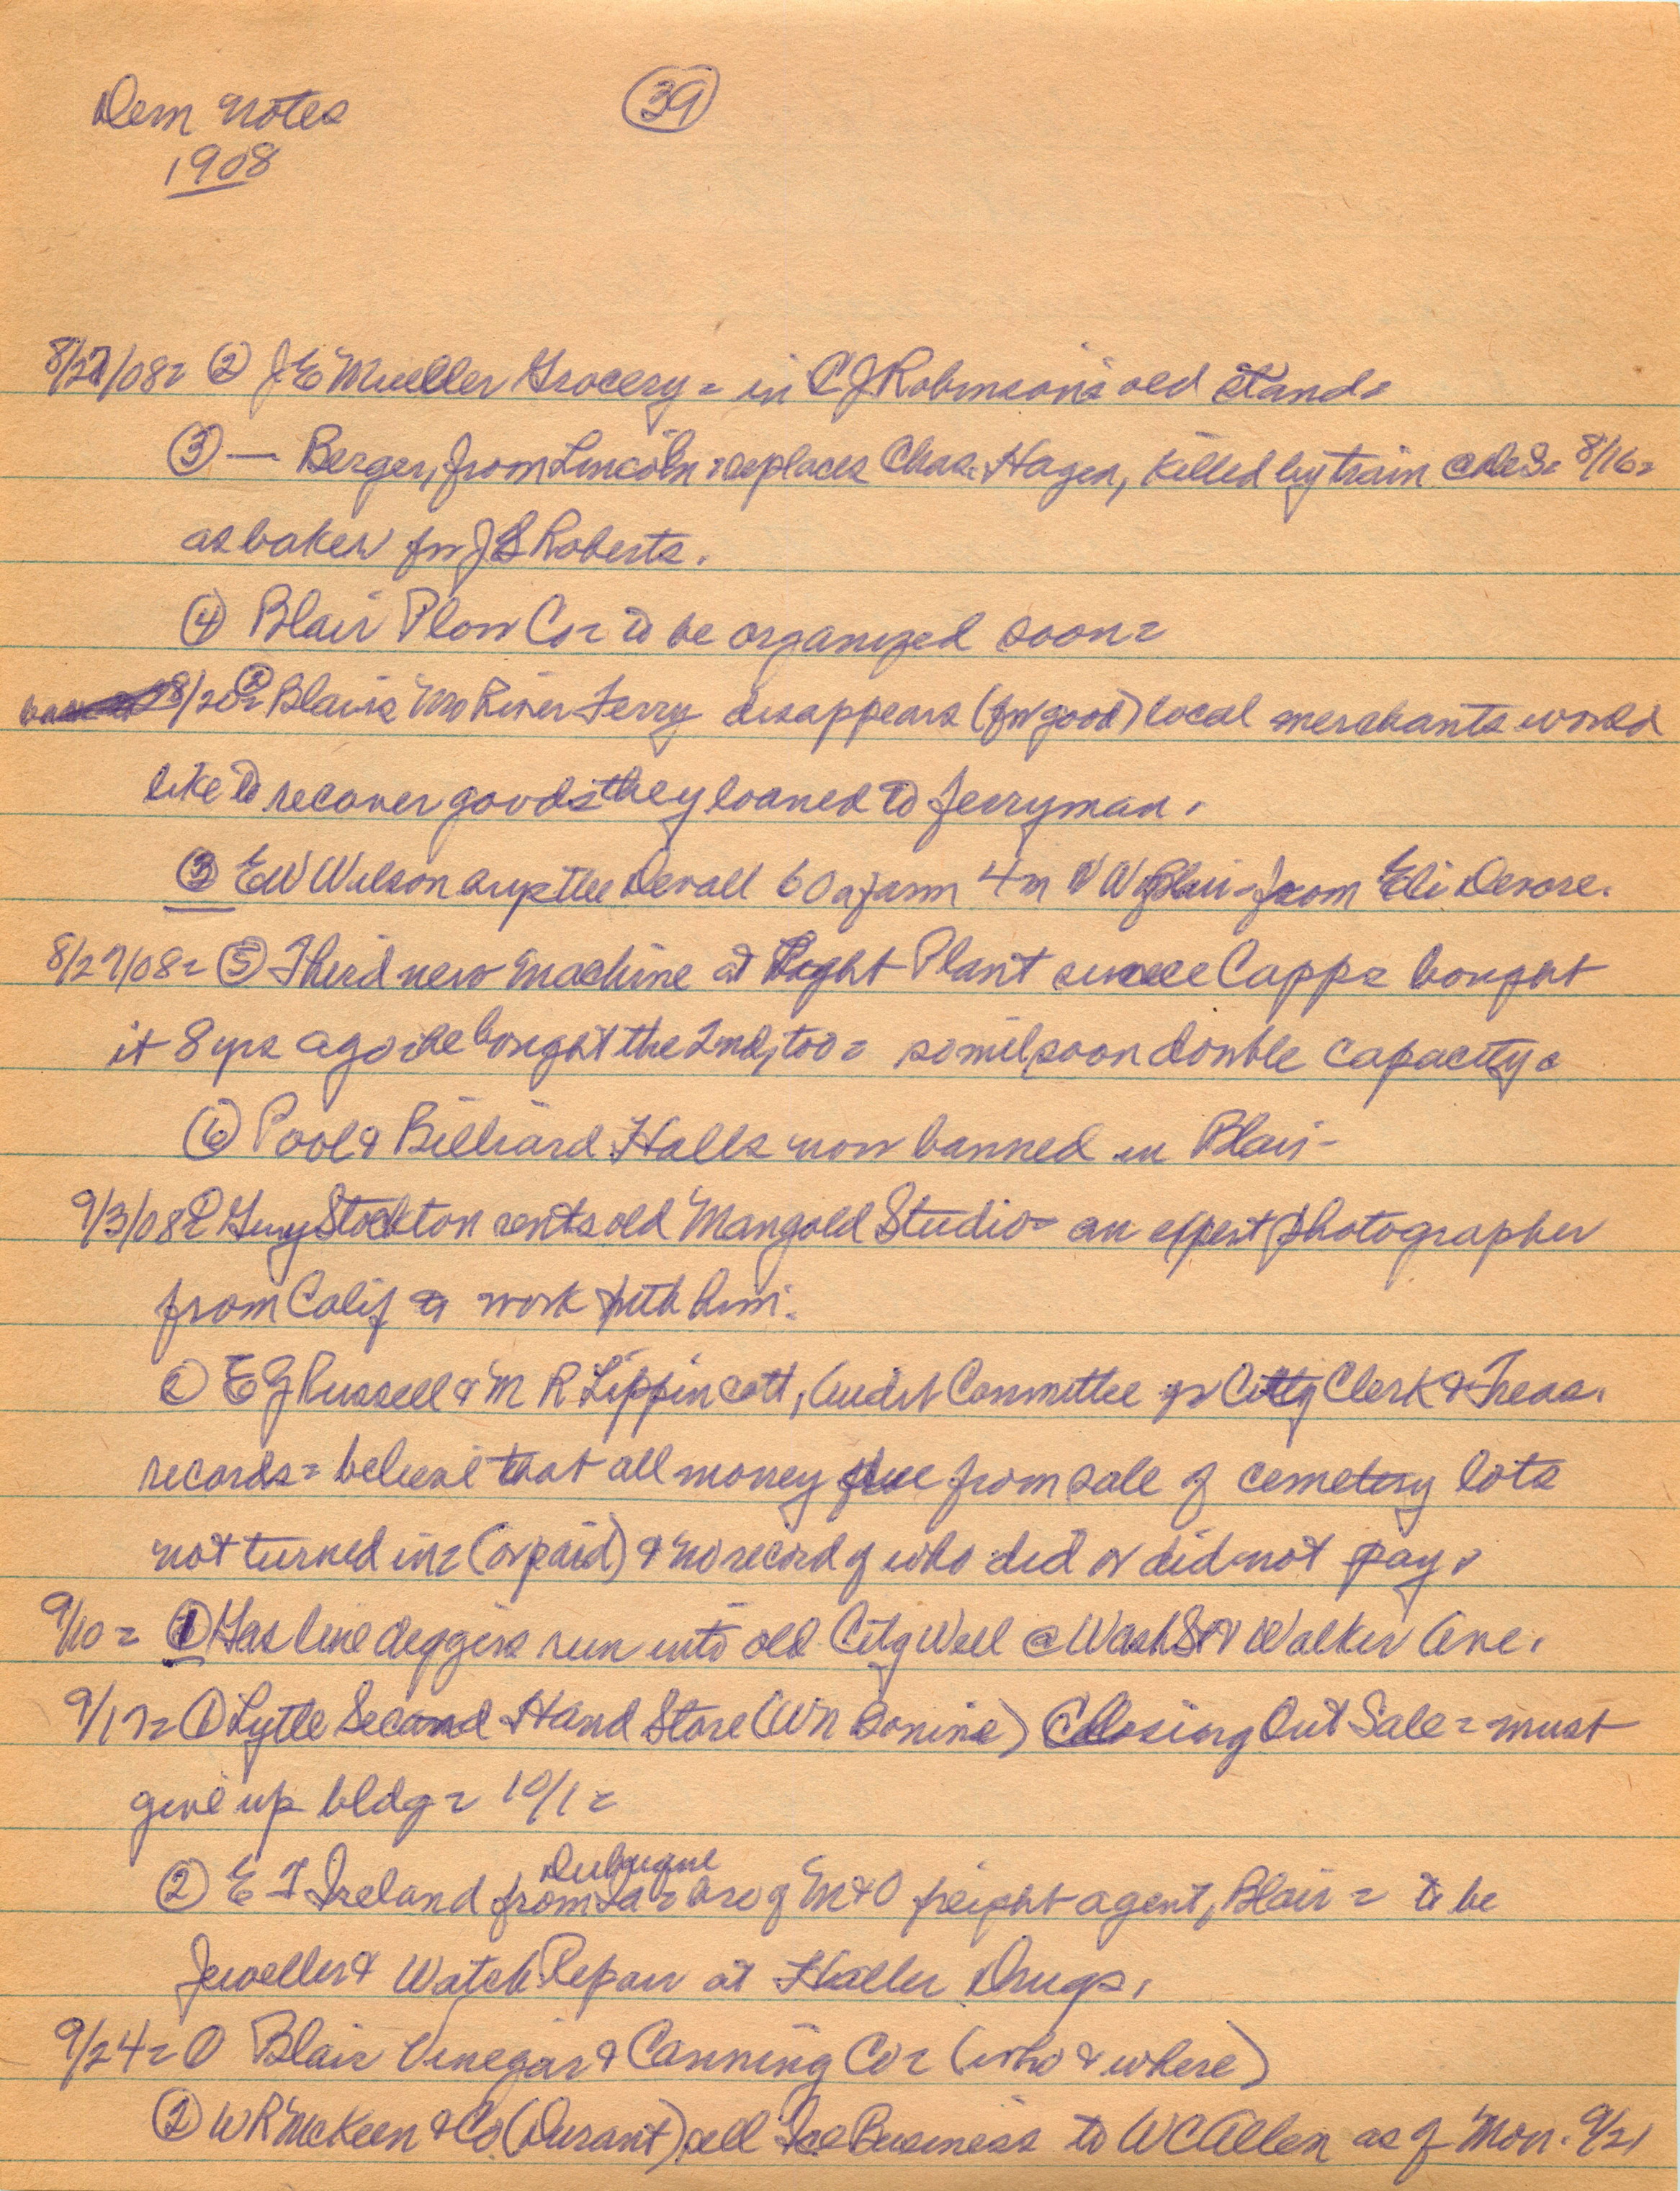 Dem Notes
39
1908
8/27/08= ② J E Mueller Grocery= in C J Robinson's old stand=
③ — Berger, from Lincoln replaces Chas. Hagen, killed by train 8/16=
as baker for J S Roberts.
④ Blair Plow Co= to be organized soon=
8/20= ② Blair's Mo River Ferry disappears (for good) local merchants would
like to recover goods they loaned to ferryman.
③ E W Wilson buys the Devall 60 a farm 4m W Blair- from Eli Devore.
8/27/08= ⑤ Third new machine at Light Plant since Capps bought
it 8 yrs ago= he bought the 2nd, too= so will soon double capacity=
⑥ Pool & Billiard Halls now banned in Blair-
9/3/08= ① Guy Stockton rents old Mangold Studio= an expert photographer
from Calif to work with him.
② E G Russell & M R Lippincott, Audit Committee for City Clerk & Treas.
records= believe that all money due from sale of cemetery lots
not turned in= (or paid) & no record of who did or did not pay.
9/10= ① Gas line diggers run into old City Well @ Wash St & Walker Ave.
9/17= ① Lytle Second Hand Store (Wn Bonine) Closing Out Sale= must
give up bldg= 10/1=
Dubuque
② E T Ireland from Ia= bro of M&O freight agent, Blair= to be
Jeweller & Watch Repair at Haller Drugs.
9/24= ① Blair Vinegar & Canning Co= (who & where)
② W R McKeen & Co (Durant) sell Ice Business to W C Allen as of Mon. 9/21